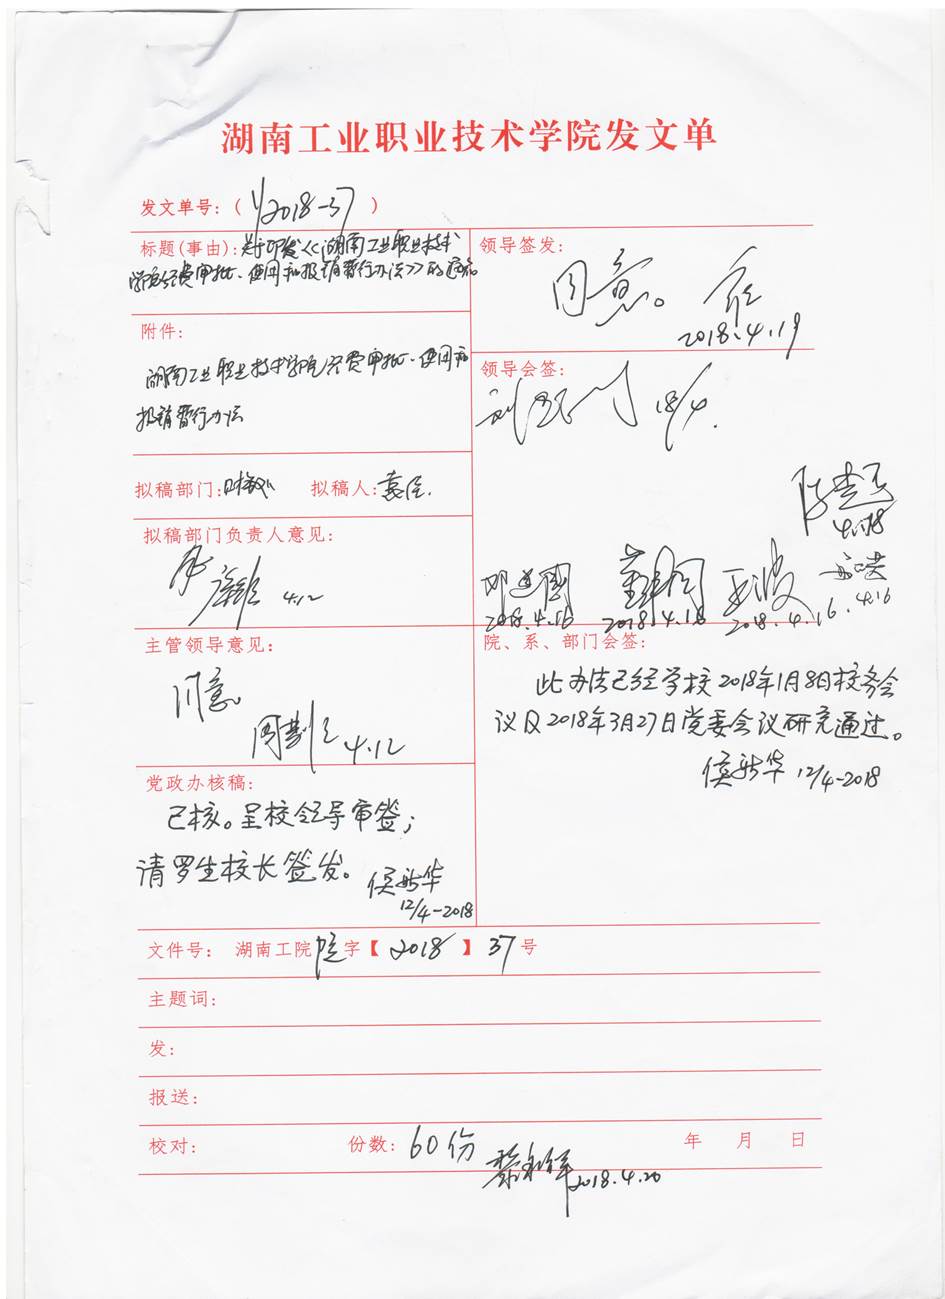 湖南工业职业技术学院发文单
发文单号：（ 2018-37 ）
标题(事由)：关于印发《湖南工业职业技术
学院经费审批、使用和报销暂行办法》的通知
附件：
湖南工业职业技术学院经费审批、使用和
报销暂行办法
拟稿部门：财务处 拟稿人：
拟稿部门负责人意见：
4.12
主管领导意见：
同意
4.12
党政办核稿：
已核。呈校领导审签；
请罗生校长签发。
侯新华
12/4-2018
领导签发：
同意。
2018.4.19
领导会签：
18/4.
4.18
2018.4.16 2018.4.18 2018.4.16 4.16
院、系、部门会签：
此办法已经学校2018年1月8日校务会
议及2018年3月27日党委会议研究通过。
侯新华 12/4-2018
文件号： 湖南工院院字【 2018 】 37 号
主题词：
发：
报送：
校对： 份数：60份 年 月 日
2018.4.20